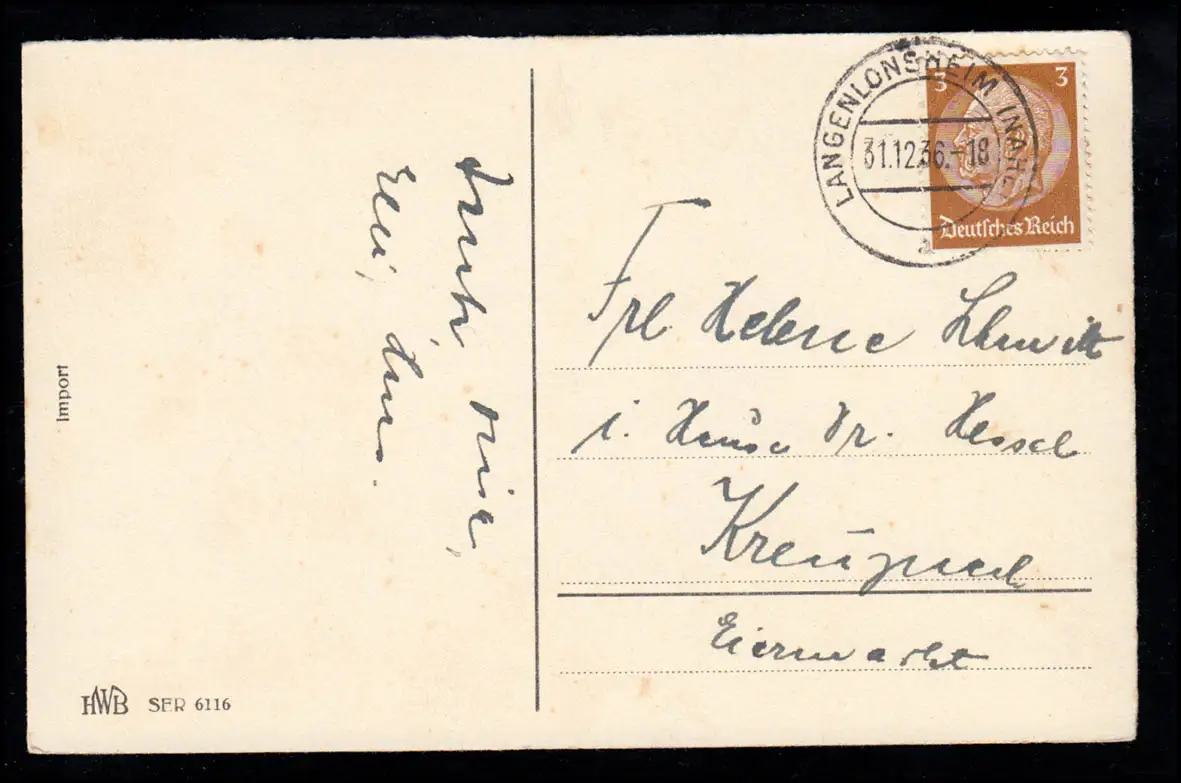 LANGENLONSHEIM (NAHE)
31.12.36.-18
a
3 3
Deutsches Reich
Elli,
Frl Helene Schmitt
i. Hause Dr. Hessel
Kreuznach
Eiermarkt
Import
HWB SER 6116